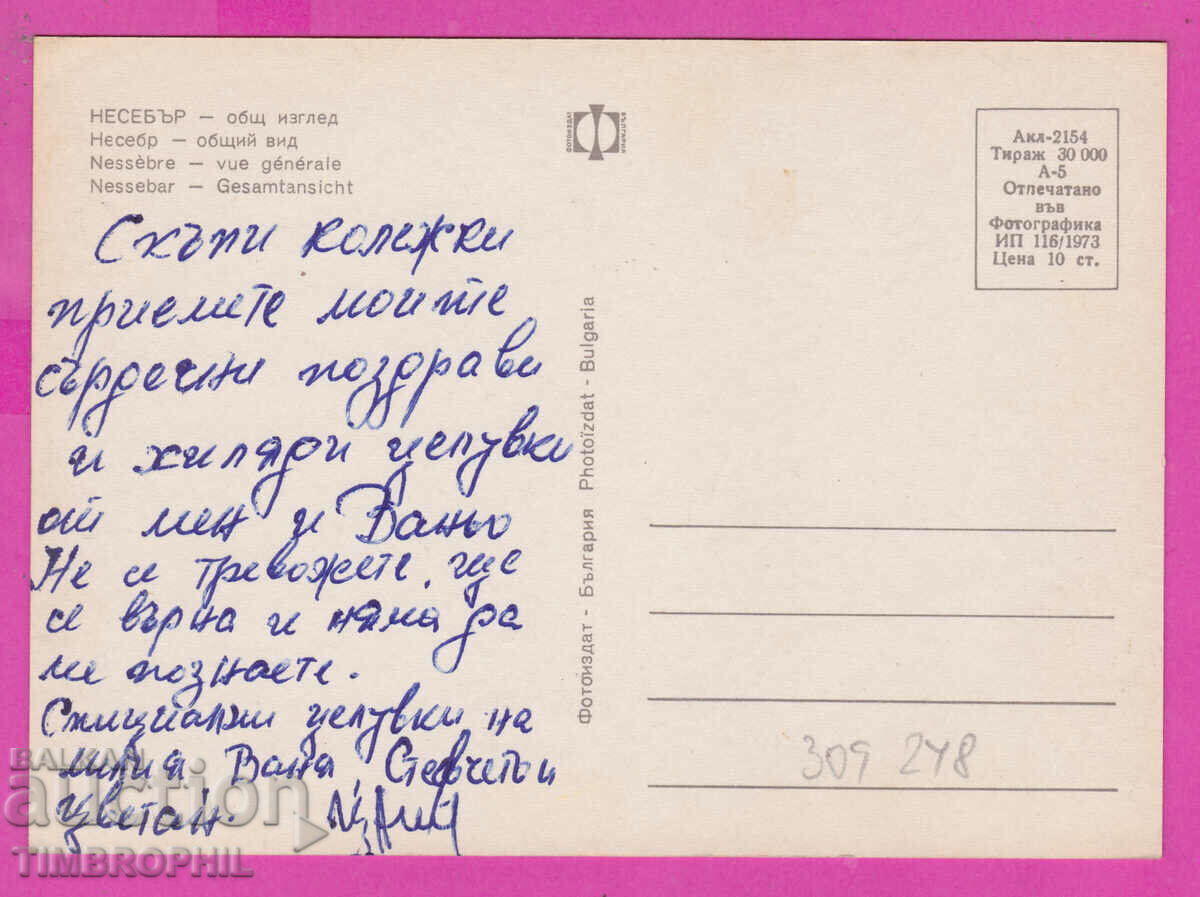 НЕСЕБЪР — общ изглед
Несебр — общий вид
Nessèbre — vue générale
Nessebar — Gesamtansicht
ФОТОИЗДАТ
БЪЛГАРИЯ
Акл-2154
Тираж 30 000
А-5
Отпечатано
във
Фотографика
ИП 116/1973
Цена 10 ст.
Скъпи колежки
приемете моите
сърдечни поздрави
и хиляди целувки
от мен и Ваньо
Не се тревожете, ще
се върна и няма да
ме познаете.
Специални целувки на
Ваня, Стевчето и
Цветан.
Фотоиздат - България Photoïzdat - Bulgaria
309 248
BALKAN
auction
TIMBROPHIL